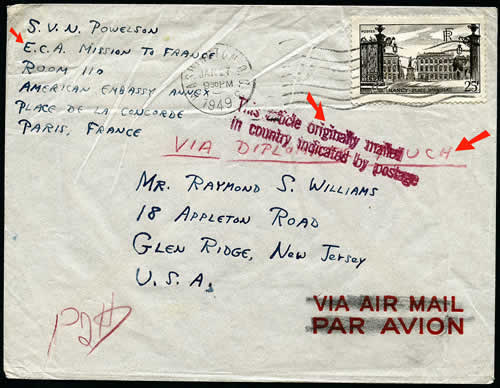 S.V.N. POWELSON
E.C.A. MISSION TO FRANCE
ROOM 110
AMERICAN EMBASSY ANNEX
PLACE DE LA CONCORDE
PARIS, FRANCE
9 30 PM
1949
POSTES
RF
NANCY - PLACE STANISLAS
25F
This article originally mailed
in country indicated by postage
VIA DIPLO UCH
MR. RAYMOND S. WILLIAMS
18 APPLETON ROAD
GLEN RIDGE, NEW JERSEY
U.S.A.
VIA AIR MAIL
PAR AVION